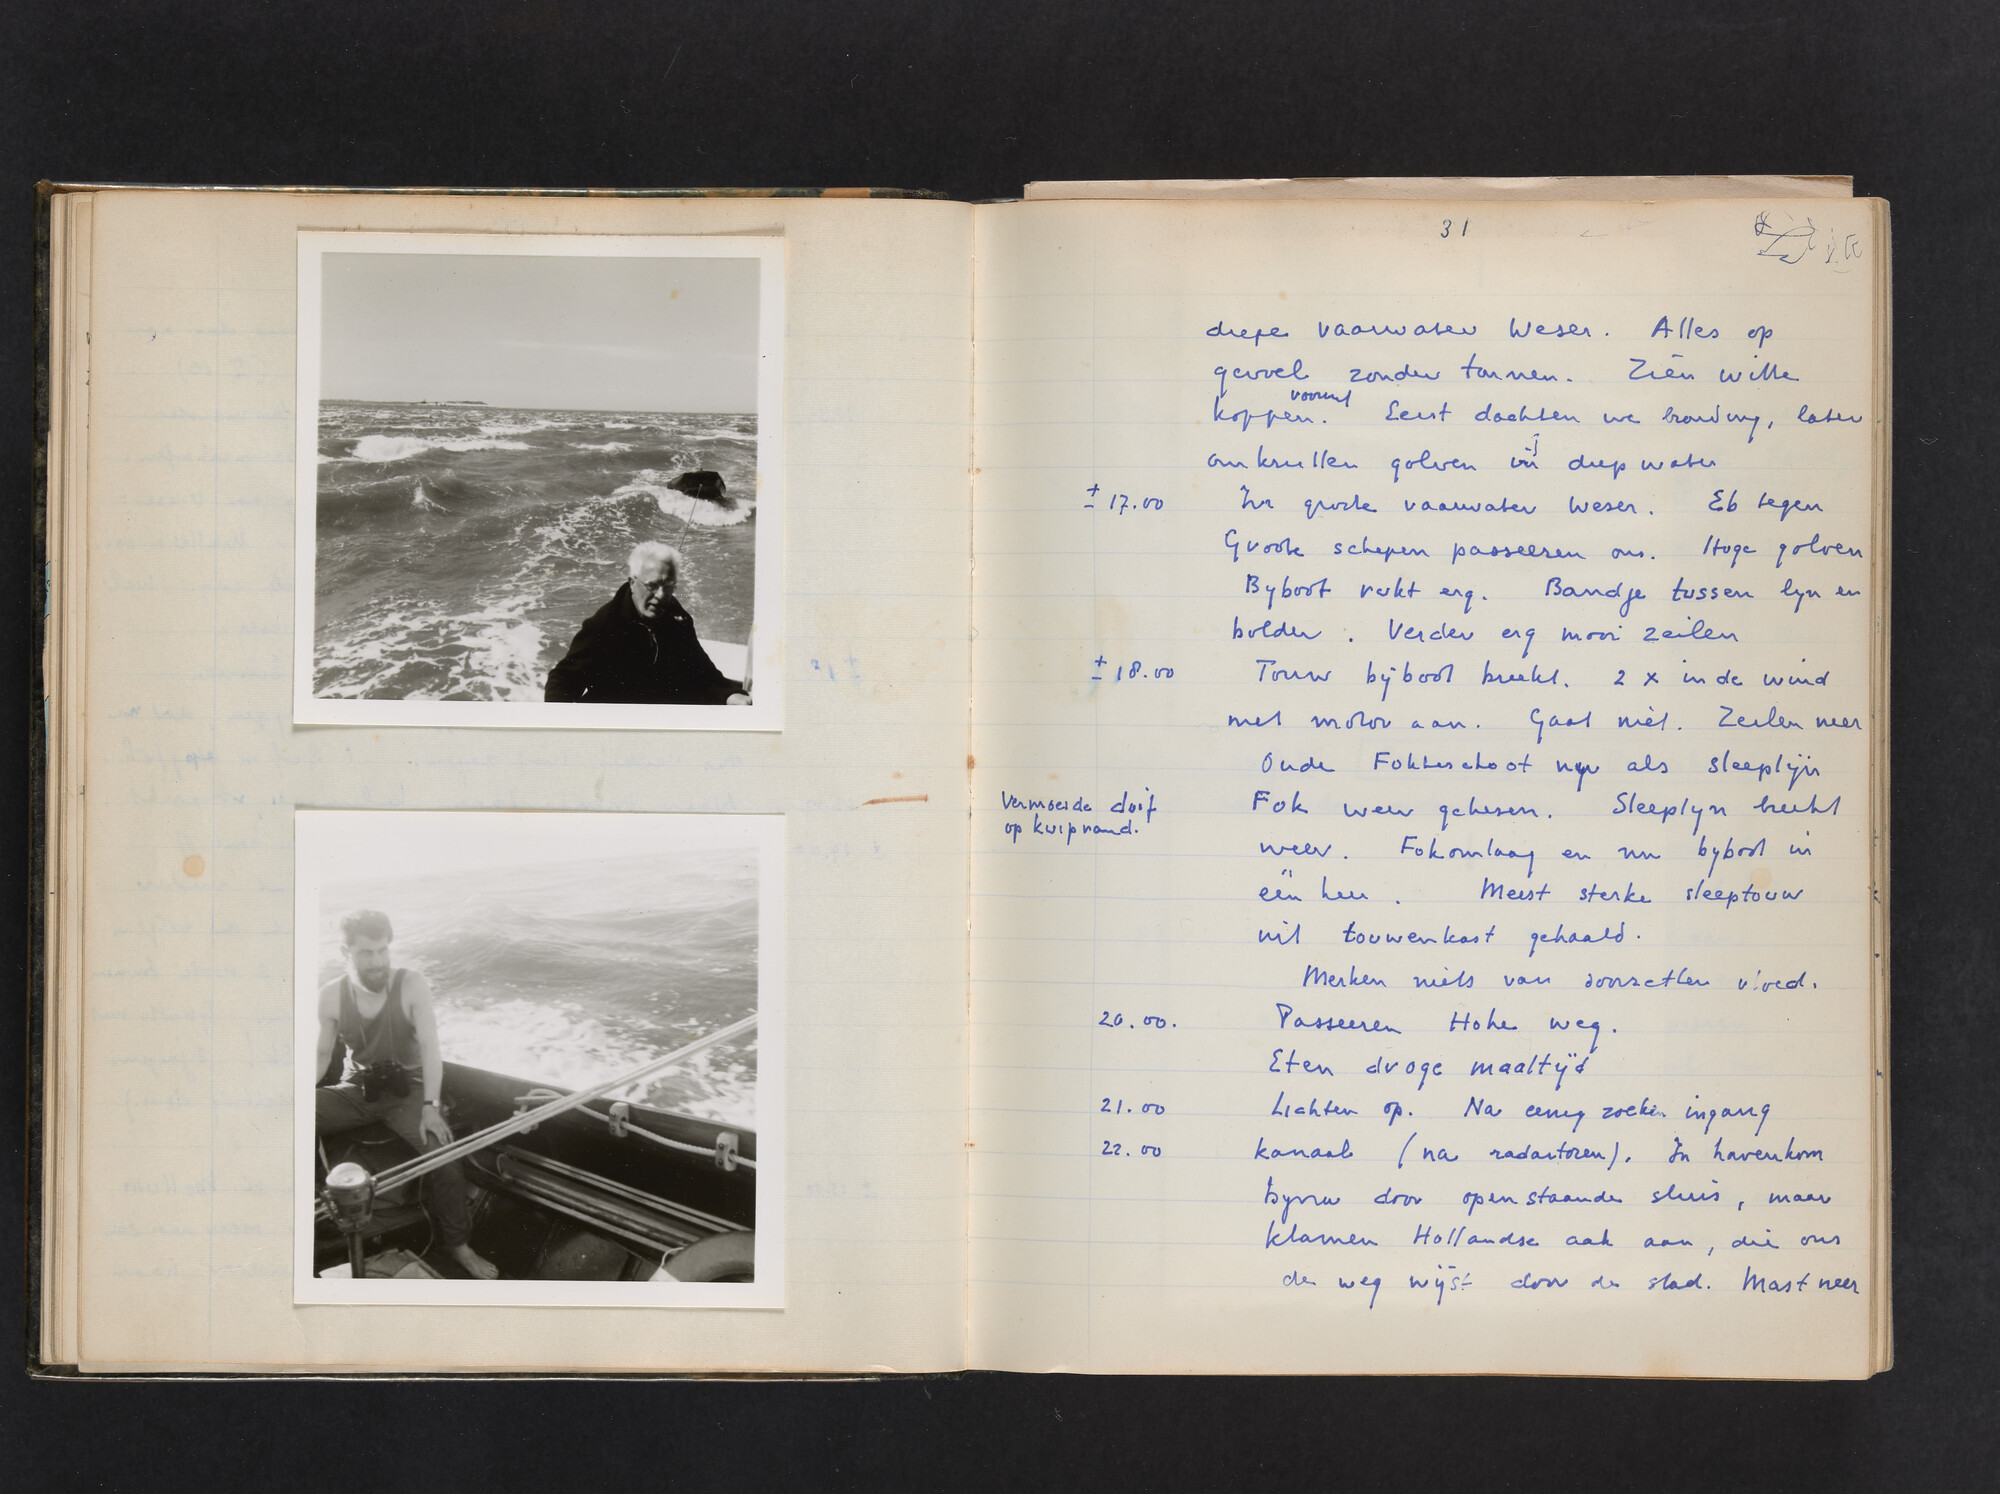 31
diepe vaarwater Weser. Alles op
gevoel zonder tonnen. Zien witte
vooruit
koppen. Eerst dachten we branding, later
omkrullen golven in diep water
± 17.00 In grote vaarwater Weser. Eb tegen
Groote schepen passeeren ons. Hoge golven
Byboot rukt erg. Bandje tussen lyn en
bolder. Verder erg mooi zeilen
± 18.00 Touw bijboot breekt. 2 x in de wind
met motor aan. Gaat niet. Zeilen neer
Oude Fokkeschoot nu als sleeplijn
Vermoeide duif
op kuiprand.
Fok weer gehesen. Sleeplyn breekt
weer. Fok omlaag en nu byboot in
één keer. Meest sterke sleeptouw
uit touwenkast gehaald.
Merken niets van doorzetten vloed.
20.00. Passeeren Hohe weg.
Eten droge maaltijd
21.00 Lichten op. Na eenig zoeken ingang
22.00 kanaal (na radartoren). In havenkom
byna door openstaande sluis, maar
klampen Hollandse aak aan, die ons
de weg wijst door de stad. Mast neer